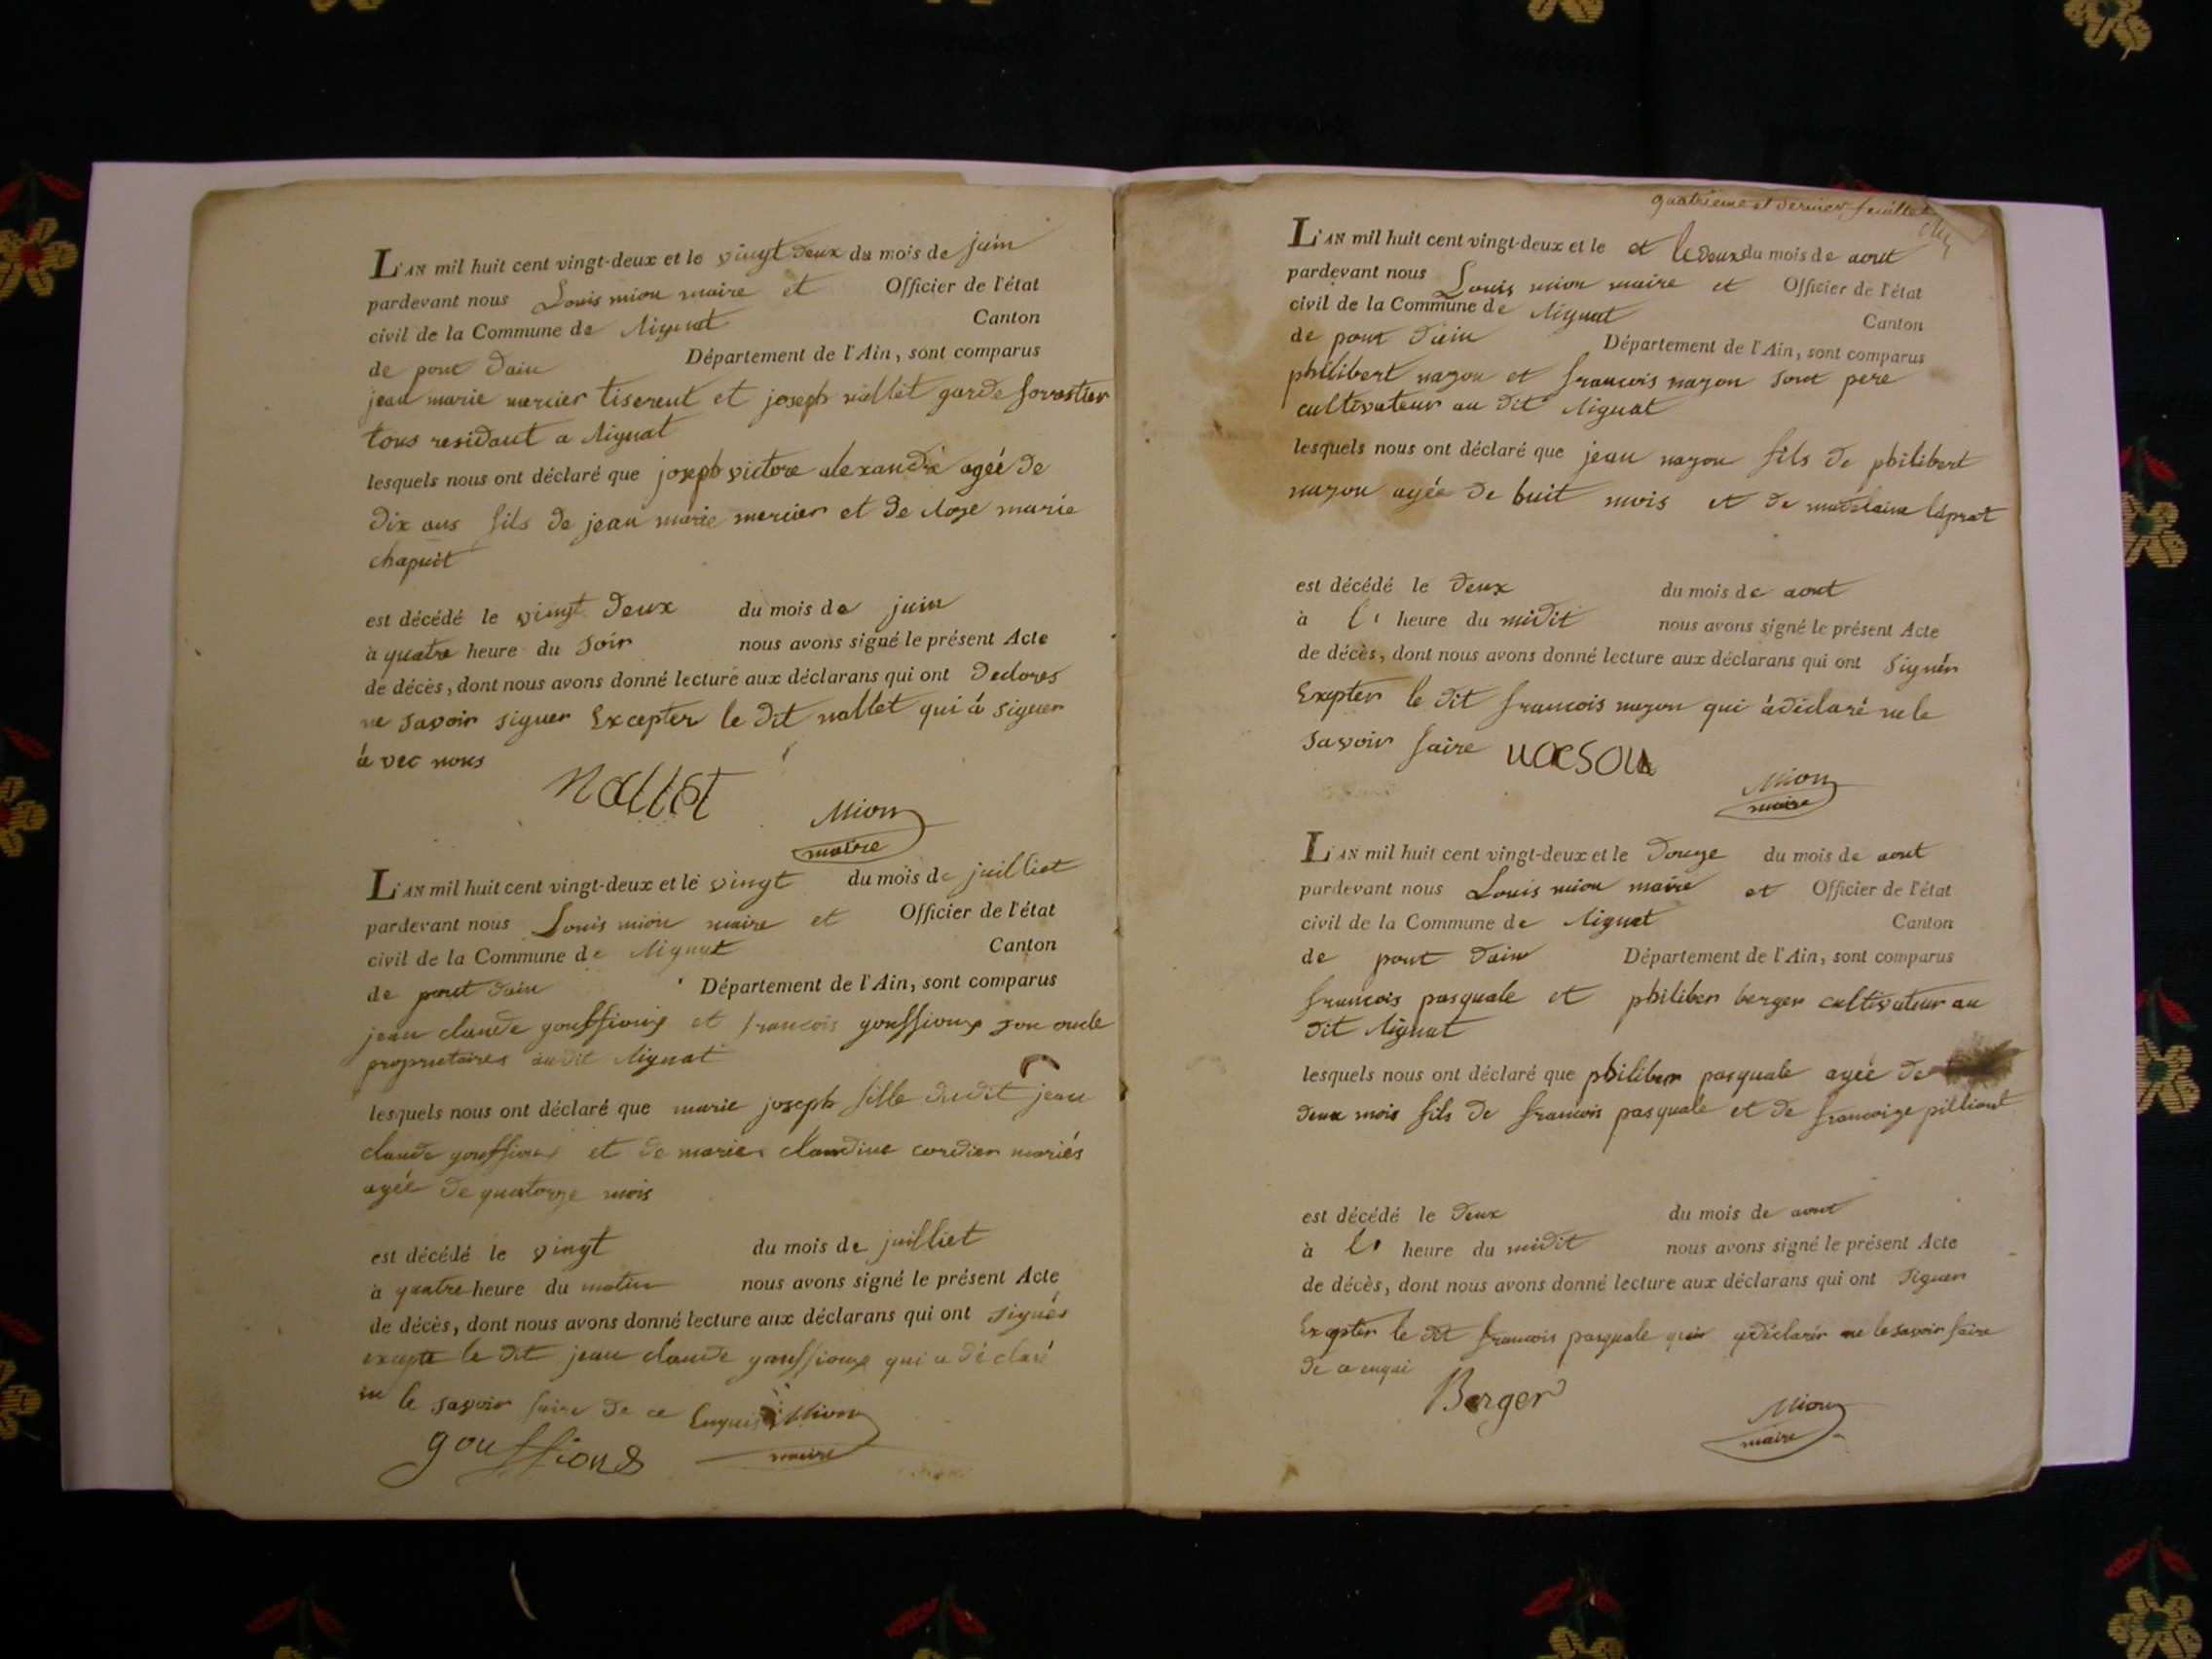 L'AN mil huit cent vingt-deux et le vingt deux du mois de juin
pardevant nous Louis mion maire et Officier de l'état
civil de la Commune de Mignat Canton
de pont dain Département de l'Ain, sont comparus
jean marie mercier tiserent et joseph nallet garde forrestier
tous residant a Mignat
lesquels nous ont déclaré que joseph victore alexandre ageé de
dix ans fils de jean marie mercier et de marie
chapuit
est décédé le vingt deux du mois de juin
à quatre heure du soir nous avons signé le présent Acte
de décès, dont nous avons donné lecture aux déclarans qui ont
ne savoir signer Excepter le dit nallet qui à signer
à vec nous
Nallet
Mion
maire
L'AN mil huit cent vingt-deux et le vingt du mois de juilliet
pardevant nous Louis mion maire et Officier de l'état
civil de la Commune de Mignat Canton
de pont dain Département de l'Ain, sont comparus
jean claude gouffioux et francois gouffioux son oncle
proprietaires audit Mignat
lesquels nous ont déclaré que marie joseph fille dudit jean
claude gouffioux et de marie claudine cordier mariés
agéé de quatorze mois
est décédé le vingt du mois de juilliet
à quatre heure du matin nous avons signé le présent Acte
de décès, dont nous avons donné lecture aux déclarans qui ont signés
excepte le dit jean claude gouffioux qui a déclaré
ne le savoir faire de ce Enquis Mion
maire
gouffions
quatrieme et dernier feuillet
L'AN mil huit cent vingt-deux et le et le deux du mois de aout
pardevant nous Louis mion maire et Officier de l'état
civil de la Commune de Mignat Canton
de pont dain Département de l'Ain, sont comparus
philibert nazon et francois nazon sont pere
cultivateur au dit Mignat
lesquels nous ont déclaré que jean nazon fils de philibert
nazon agée de huit mois et de madelaine léprat
est décédé le deux du mois de aout
à heure du midit nous avons signé le présent Acte
de décès, dont nous avons donné lecture aux déclarans qui ont signér
Exepter le dit francois nazon qui à déclaré ne le
savoir faire nason
Mion
maire
L'AN mil huit cent vingt-deux et le douze du mois de aout
pardevant nous Louis mion maire et Officier de l'état
civil de la Commune de Mignat Canton
de pont dain Département de l'Ain, sont comparus
francois pasquale et philiber berger cultivateur au
dit Mignat
lesquels nous ont déclaré que philiber pasquale agée de
deux mois fils de francois pasquale et de francoize pilliout
est décédé le deux du mois de aout
à heure du midit nous avons signé le présent Acte
de décès, dont nous avons donné lecture aux déclarans qui ont signer
Exepter le dit francois pasquale qui ne le savoir faire
de ce enqui
Berger
Mion
maire